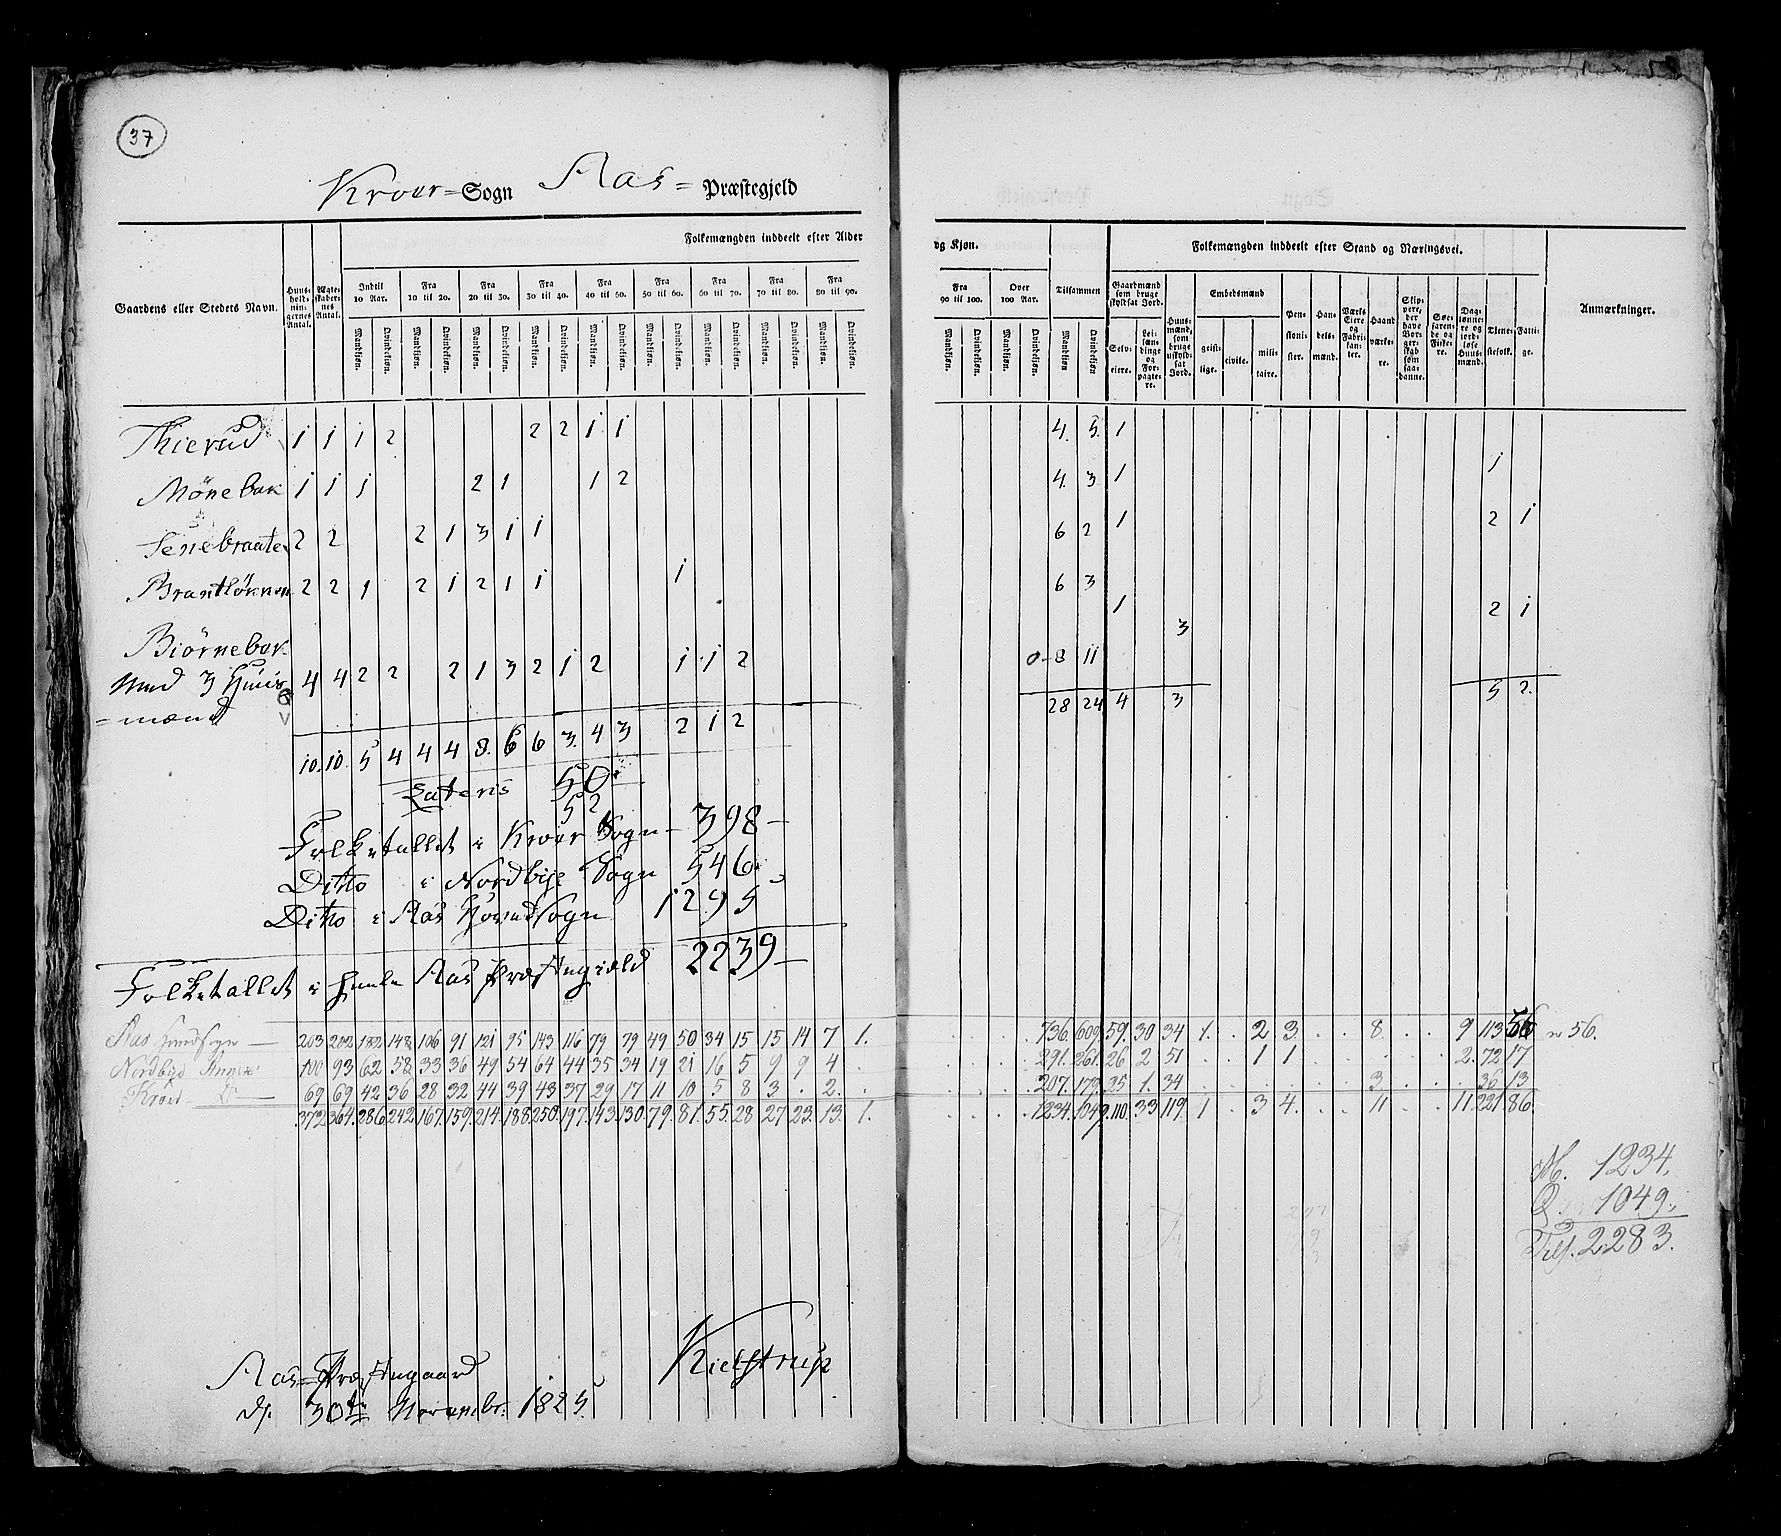 37
Kroer = Sogn Aas = Præstegjeld
Folkemængden inddeelt efter Alder og Kjøn.
Folkemængden inddeelt efter Stand og Næringsvei.
Gaardens eller Stedets Navn.
Huus-holdnin-gernes Antal.
Ægte-skaber-nes Antal.
Indtil 10 Aar.
Fra 10 til 20.
Fra 20 til 30.
Fra 30 til 40.
Fra 40 til 50.
Fra 50 til 60.
Fra 60 til 70.
Fra 70 til 80.
Fra 80 til 90.
Fra 90 til 100.
Over 100 Aar.
Tilsammen
Gaardmænd som bruge skyldsat Jord.
Embedsmænd
Mandkjøn. Qvindekjøn.
Selv-eiere.
Lei-læn-dinge og For-pagte-re.
Huus-mænd, som bruge uskyld-sat Jord.
geist-lige.
civile.
mili-taire.
Pen-sioni-ster.
Han-dels-mænd.
Værks Eiere og Fabri-kan-ter.
Haand-værke-re.
Skip-pere, der have Bor-ger-skab som saa-danne.
Søe-faren-de og Fiske-re.
Dag-lønne-re og jord-løse Huus-mænd.
Tjene-stefolk.
Fatti-ge.
Anmærkninger.
Thierud 1 1 1 2 2 2 1 1 4. 5. 1
Mönebek 1 1 1 2 1 1 2 4. 3 1 1
Senebraaten 2 2 2 1 3 1 1 6 2 1 2 1
2 2 1 2 1 2 1 1 1 6 3 1 2 1
Biörnebek
med 3 Huus
= mænd 4 4 2 2 2 1 3 2 1 2 1 1 2 8 11 3
10. 10. 5 4 4 4 8. 6 6 3. 4 3 2 1 2 28 24 4 3 5 2.
Lateris 50
52
Folketallet i Kroer Sogn - 398 -
Ditto i Nordbye Sogn 546.
Ditto i Aas Hovedsogn 1295
Folketallet i heele Aas Præstegield 2239 -
Aas Hovedsogn 203 202 182 148 106 91 121 95 143 116 79 79 49 50 34 15 15 14 7 1. 736. 609. 59. 30 34 1. 2 3. 8. 9 113 56 56.
Nordbye Annex 100 93 62 58 33 36 49 54 64 44 35 34 19 21 16 5 9 9 4 291. 261. 26 2 51 1 1 2. 72 17
Kroer D⁰ 69 69 42 36 28 32 44 39 43 37 29 17 11 10 5 8 3 2. 207. 179. 25 1. 34 3 36 13
372 364. 286 242 167. 159. 214. 188. 250. 197. 143. 130. 79. 81. 55. 28 27. 23. 13. 1. 1234. 1049. 110. 33 119. 1 3 4. 11 11. 221 86.
M. 1234.
Q. 1049.
Tils. 2283.
Aas = Præstegaard
d. 30te Novembr. 1825.
Kielstrup